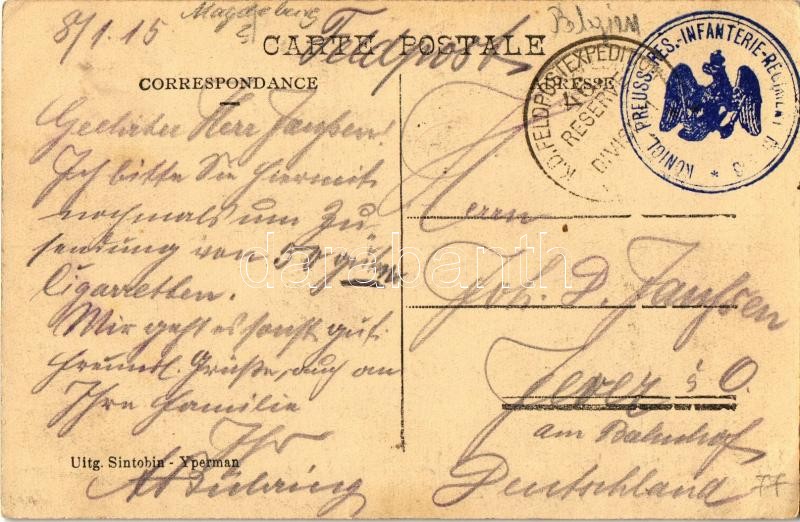 8/1. 15
Magdeburg
Feldpost
Belgien
CARTE POSTALE
CORRESPONDANCE
ADRESSE
K.D. FELDPOSTEXPEDITION
RESERVE
DIVIS
KÖNIGL. PREUSS. RES.-INFANTERIE-REGIMENT
Geehrter Herr Janssen!
Ich bitte Sie hiermit
nochmals um Zu-
sendung von 50
Cigaretten.
Mir geht es sonst gut.
Freundl. Grüße, auch an
Ihre Familie
Ihr
Herrn
Joh. D. Janssen
Jever i O.
am Bahnhof
Deutschland
Uitg. Sintobin - Yperman
darabanth